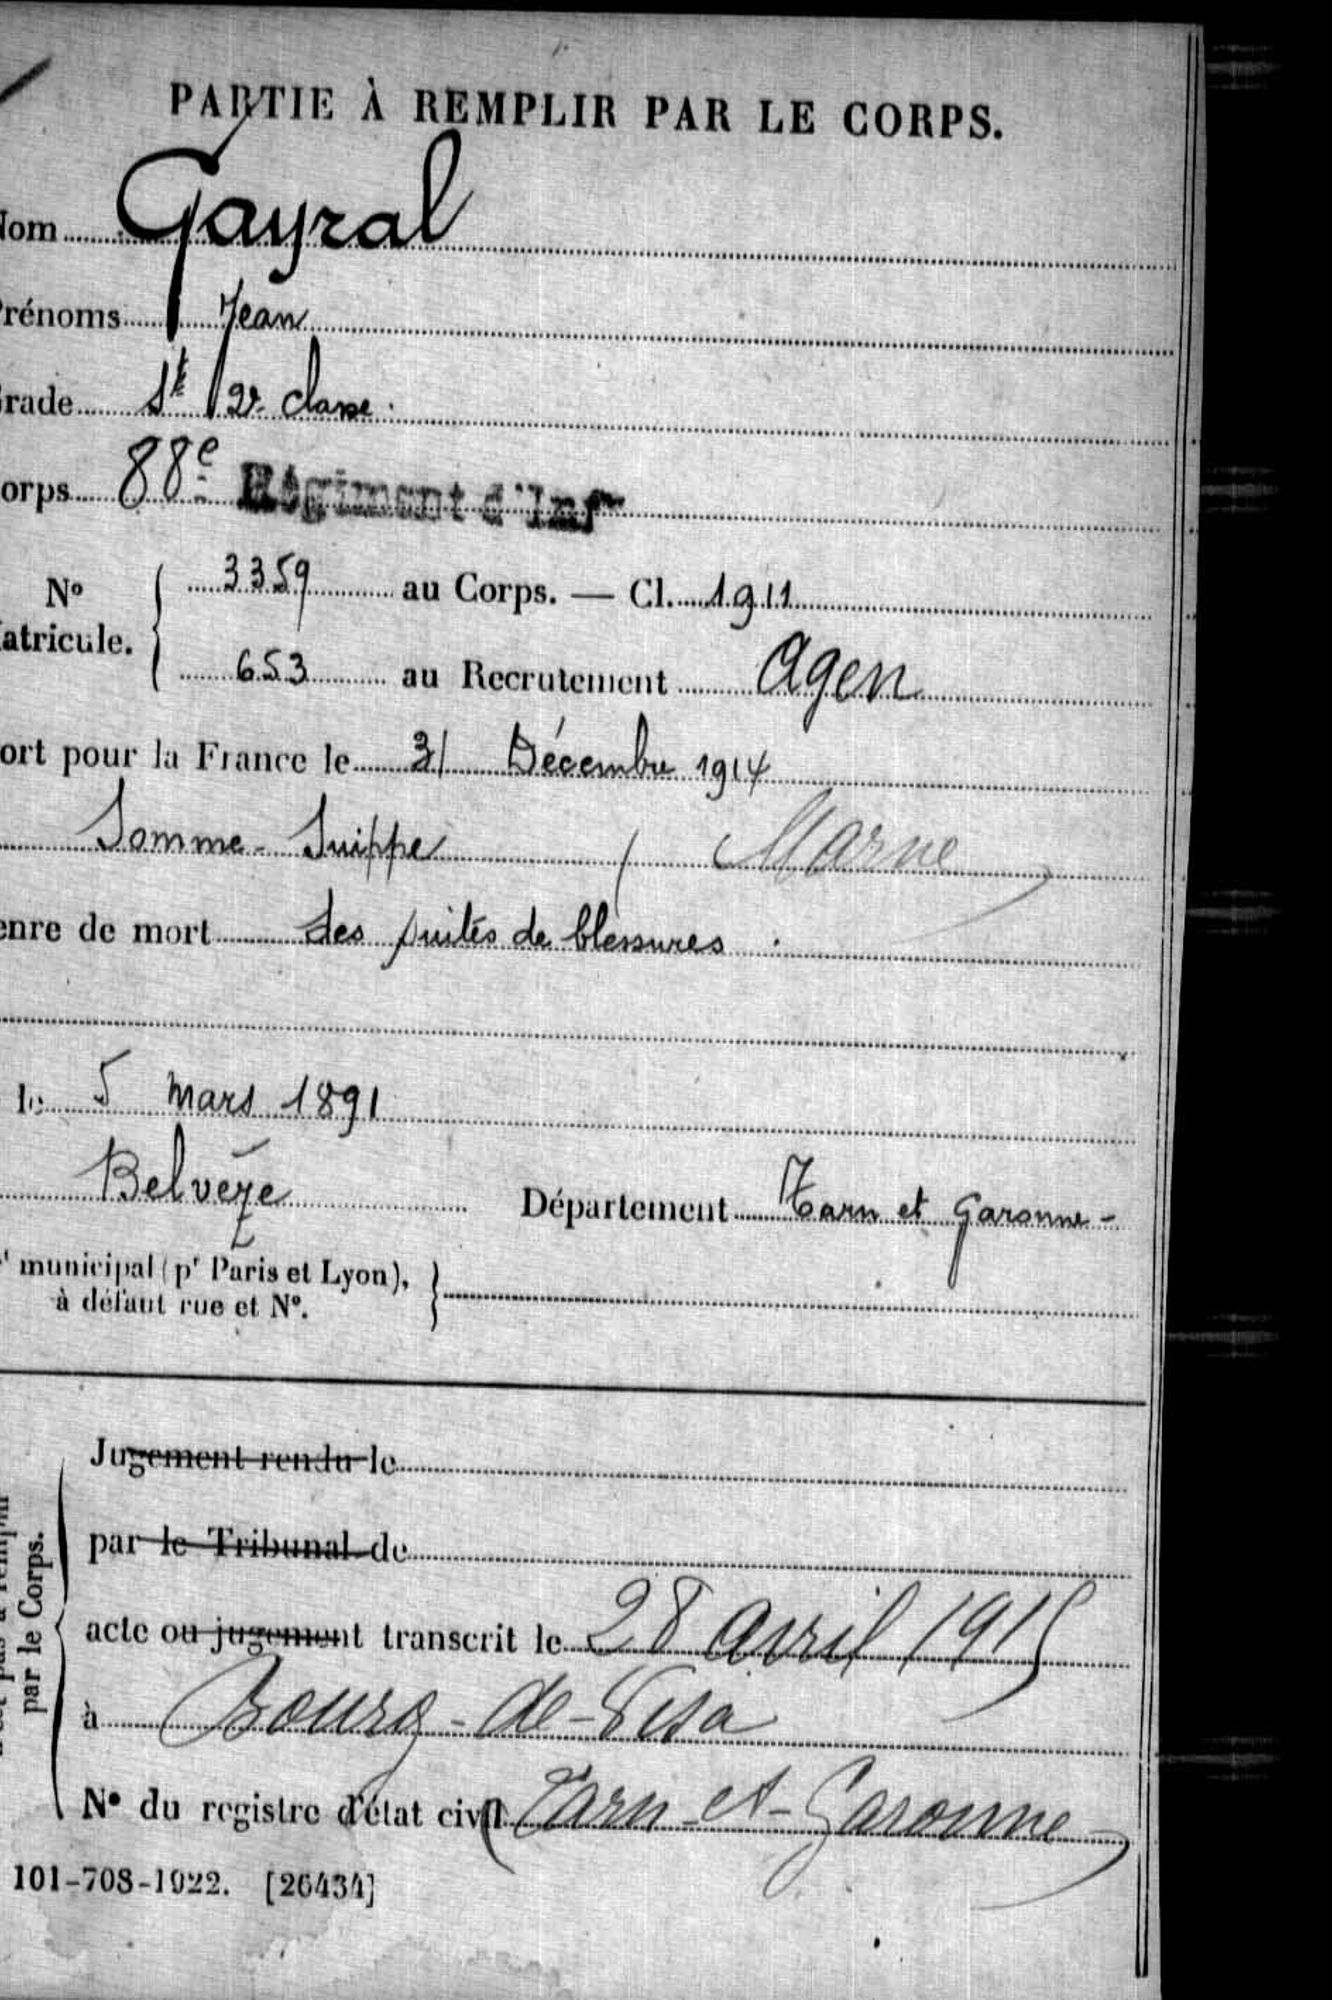 PARTIE À REMPLIR PAR LE CORPS.
Nom Gayral
Prénoms Jean
Grade St 2e classe.
Corps 88e Régiment d'Infie
No Matricule. 3359 au Corps. — Cl. 1911
653 au Recrutement Agen
ort pour la France le 31 Décembre 1914
Somme-Suippe (Marne)
enre de mort des suites de blessures.
le 5 mars 1891
Belvèze Département Tarn et Garonne-
municipal (pr Paris et Lyon),
à défaut rue et No.
Jugement rendu le
par le Tribunal de
acte ou jugement transcrit le 28 avril 1915
par le Corps.
à Bourg-de-Visa
No du registre d'état civil (Tarn-et-Garonne)
101-708-1922. [26434]